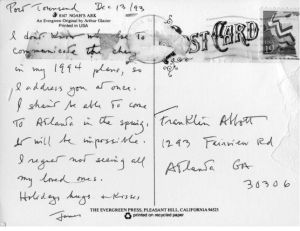 Port Townsend Dec 13/93
8347 NOAH'S ARK
An Evergreen Original by Arthur Glazier
Printed in USA
I don't know who to
communicate the change
in my 1994 plans, so
I address you at once.
I shan't be able to come
to Atlanta in the spring.
It will be impossible.
I regret not seeing all
my loved ones.
Holiday hugs & kisses,
James
POST CARD
Franklin Abbott
1293 Fairview Rd
Atlanta GA
30306
THE EVERGREEN PRESS, PLEASANT HILL, CALIFORNIA 94523
printed on recycled paper